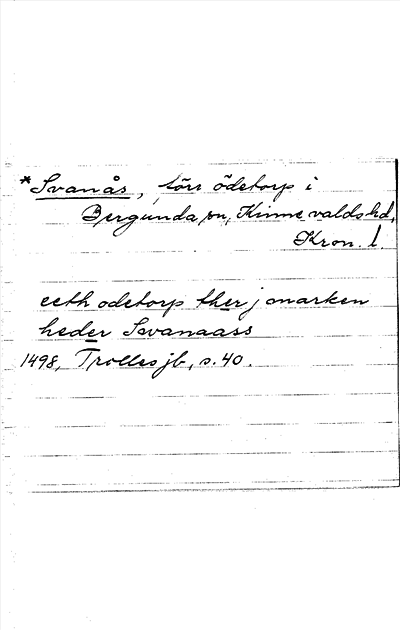 *Svanås, förr ödetorp i
Bergunda sn, Kinnevalds hd,
Kron. l.
eeth odetorp ther j marken
heder Swanaass
1498, Trolles jb, s. 40.